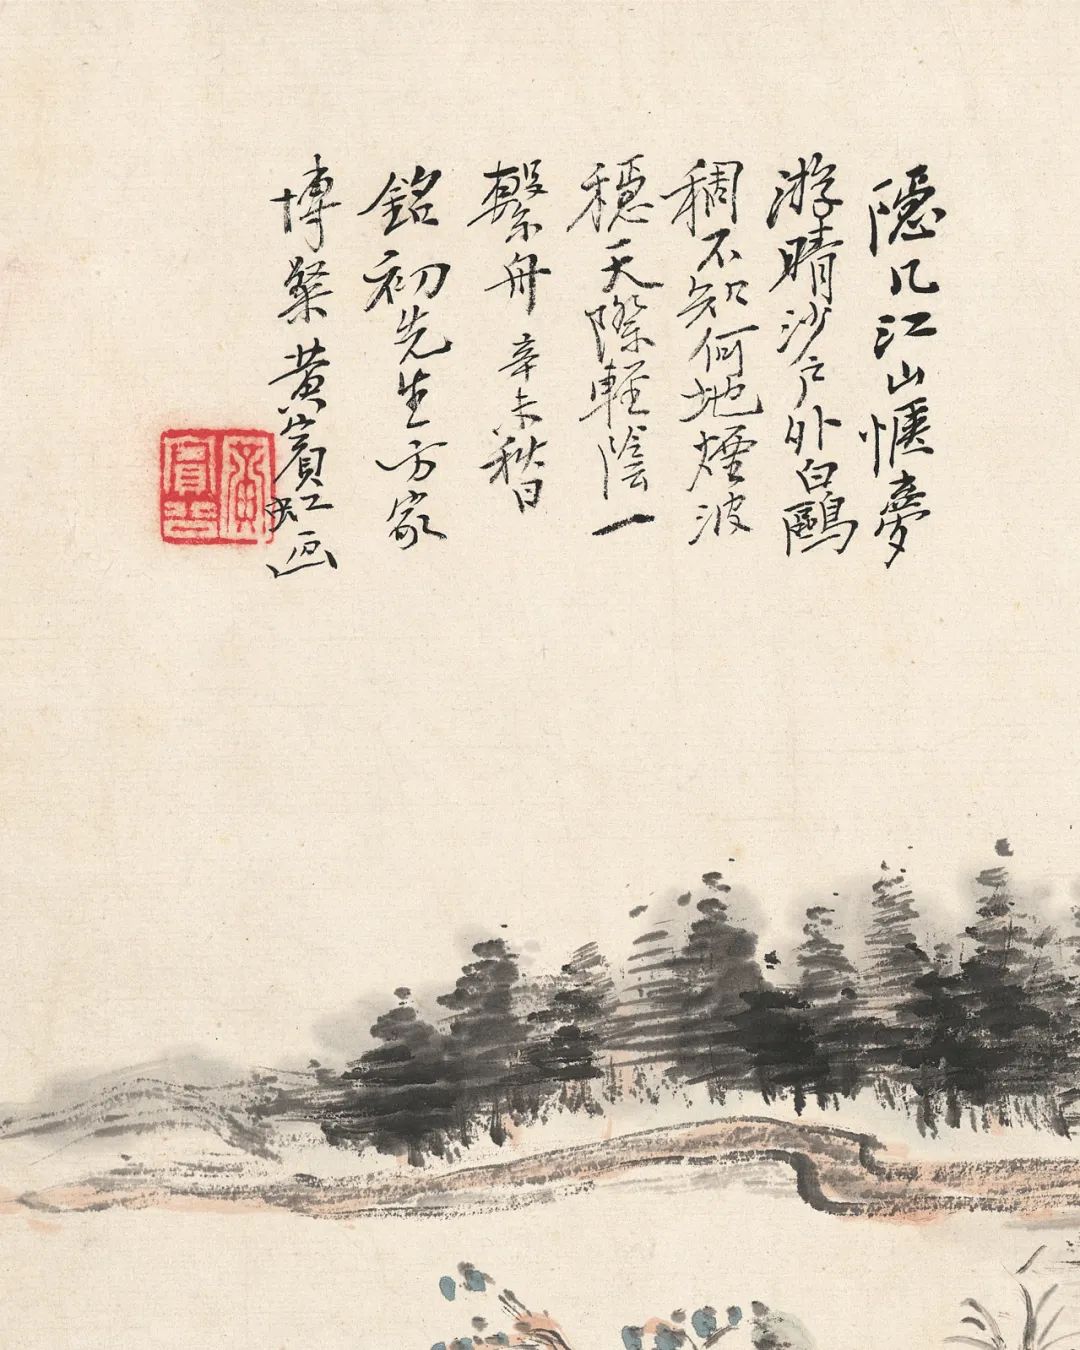 隱几江山愜夢
游晴沙戶外白鷗
稠不知何地煙波
穩天際輕陰一
繫舟 辛未秋日
銘初先生方家
博粲 黃賓虹画
黃賓虹